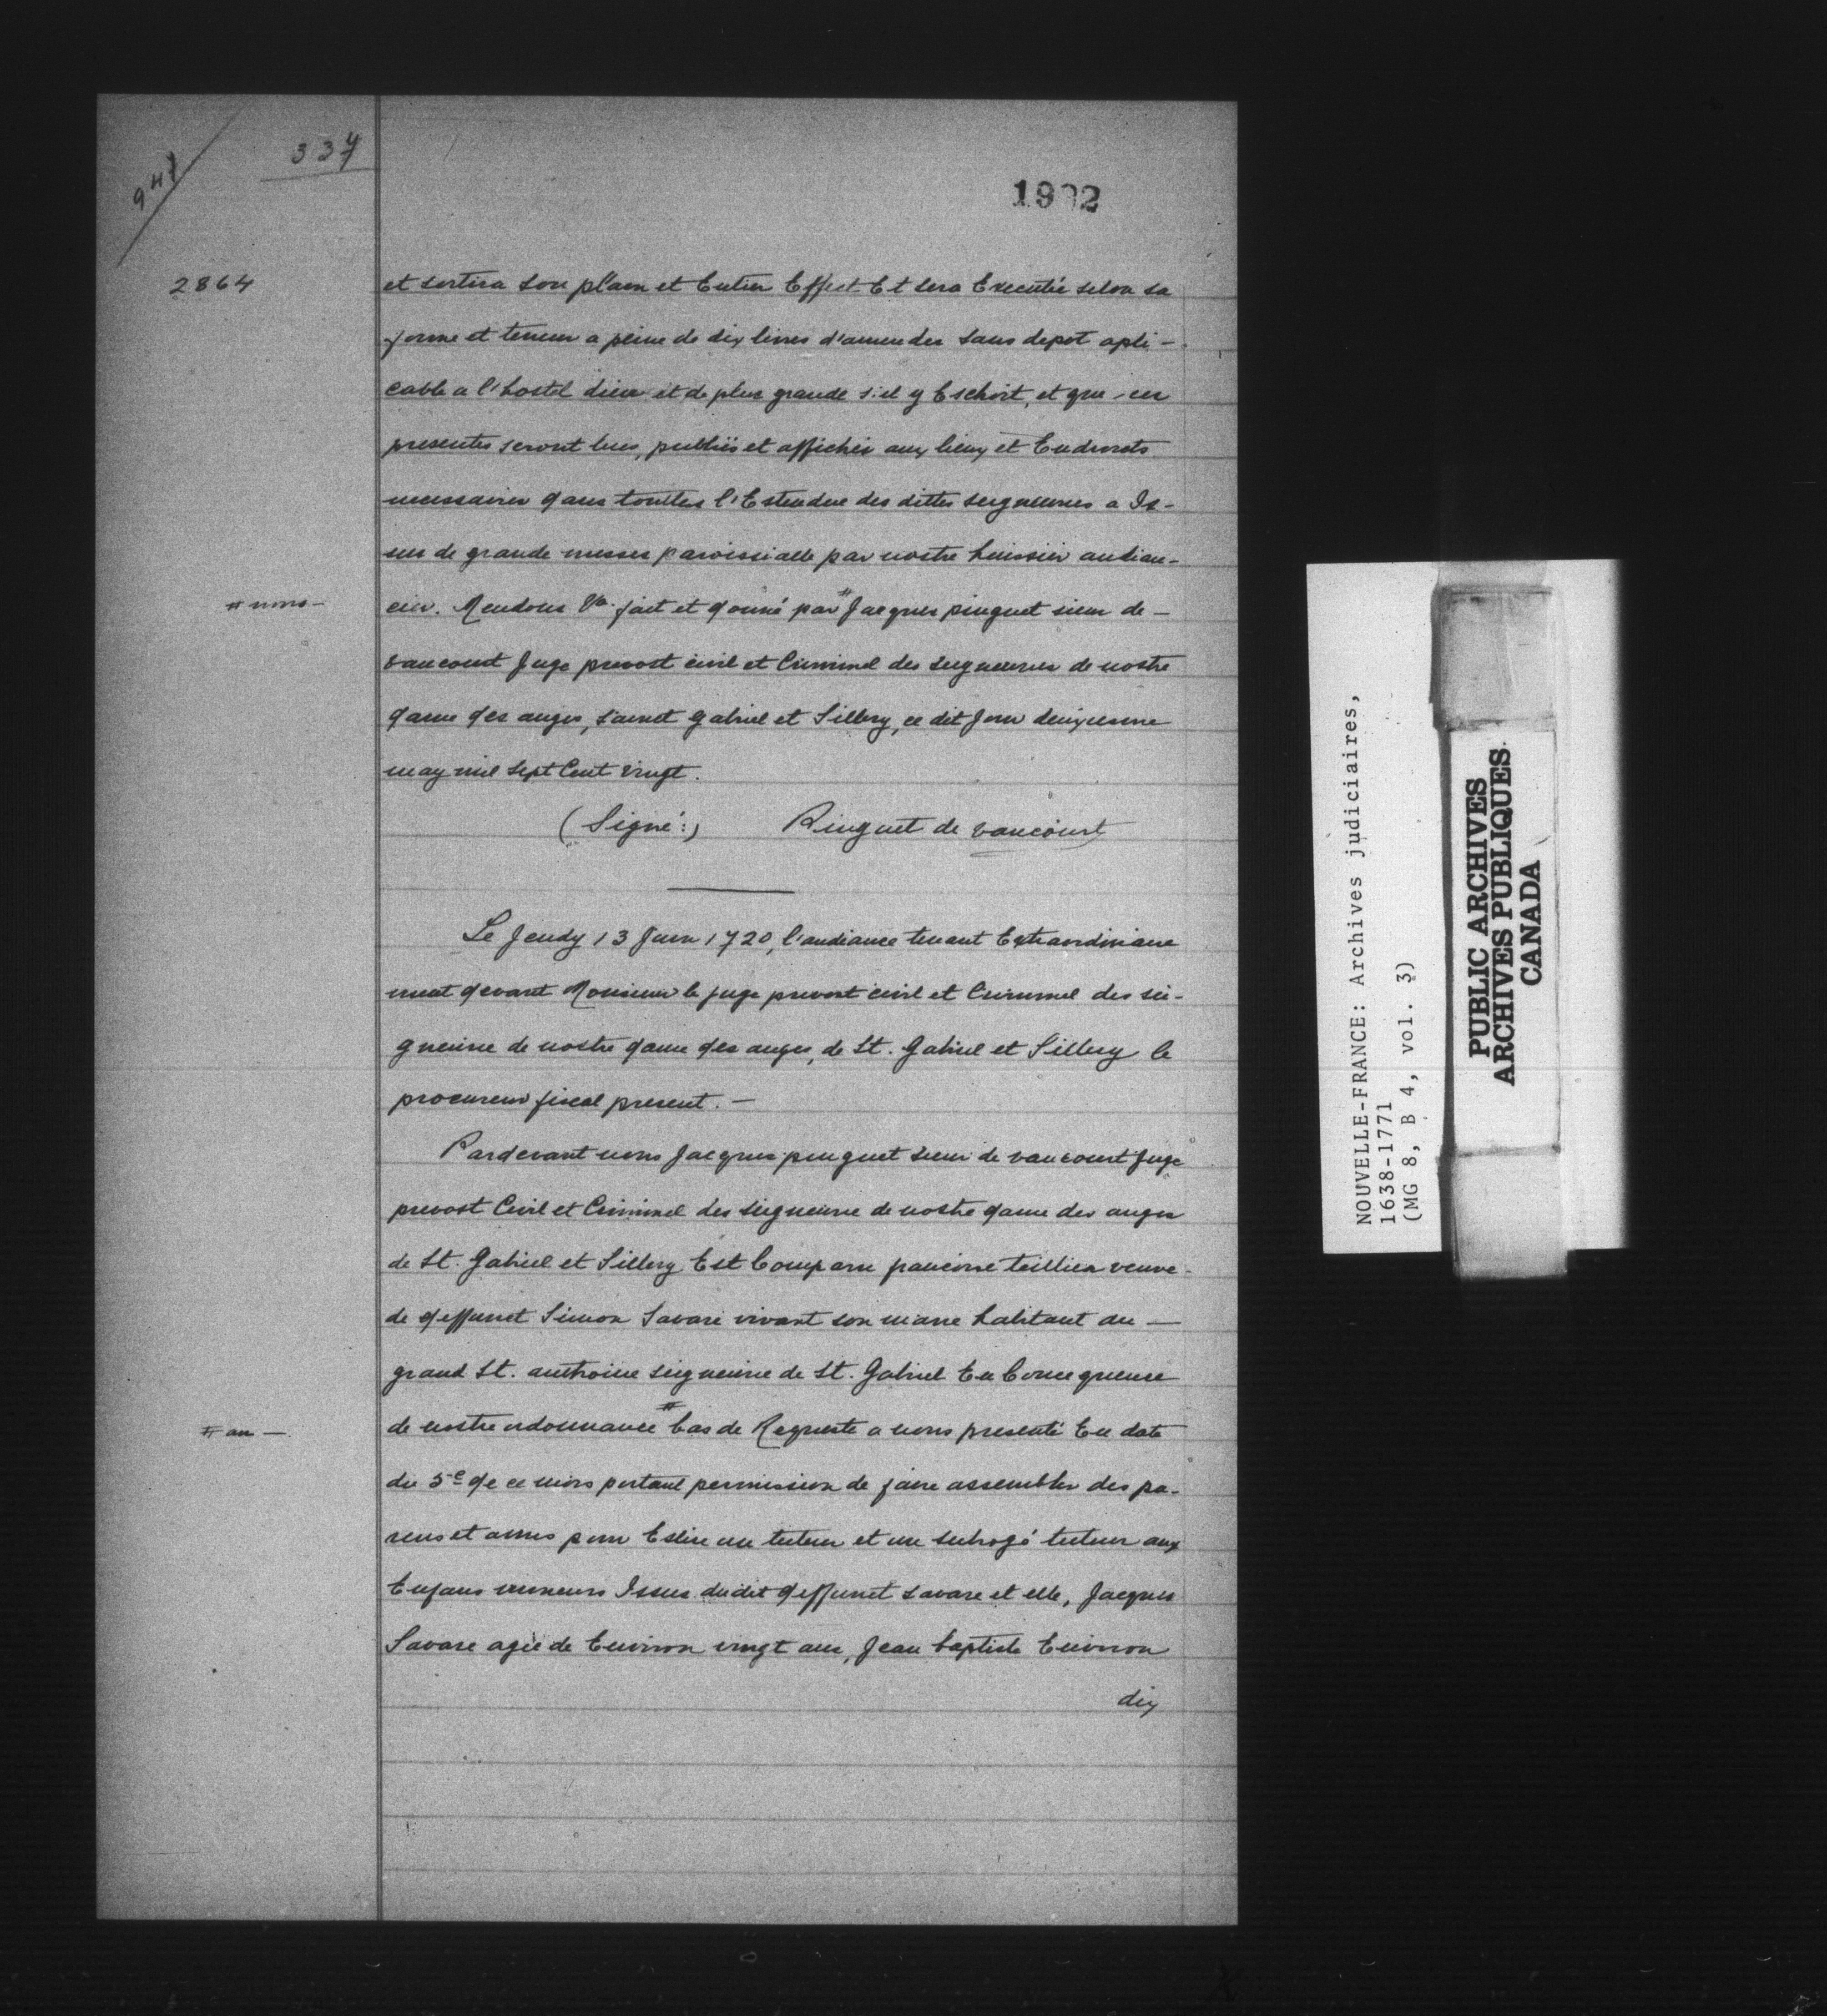 941
337
1902
2864
et sortira son plain et Entier Effect Et sera Executée selon sa
forme et teneur a peine de dix livres d'amendes sans depot apli-
cable a l'hostel dieu et de plus grande s'il y Eschoit, et que ces
presentes seront lues, publiés et affichés aux lieux et Endroits
necessaires dans touttes l'Estendue des dittes seigneuries a Is-
sue de grande messes paroissialle par nostre huissier audian-
# nous -
cier. Mendons &a. fait et donné par # Jacques pinguet sieur de -
vaucourt Juge prevost civil et Criminel des seigneuries de nostre
dame des anges, sainct gabriel et Sillery, ce dit Jour deuxiesme
may mil sept Cent vingt.
(Signé:) Pinguet de vaucourt
Le Jeudy 13 Juin 1720, l'audiance tenant Extraordinaire
ment devant Monsieur le juge prevost civil et Criminel des sei-
gneurie de nostre dame des anges, de St. Gabriel et Sillery le
procureur fiscal present. -
Pardevant nous Jacques pinguet sieur de vaucourt Juge
prevost Civil et Criminel des seigneurie de nostre dame des anges
de St. Gabriel et Sillery Est Comparu francoise teillier veuve -
de deffunct Simon Savare vivant son marie habitant du -
grand St. anthoine seigneurie de St. Gabriel En Consequense
# au -
de nostre ordonnance # bas de Requeste a nous presenté En date
du 5e de ce mois portant permission de faire assembler des pa-
rens et amis pour Eslire un tuteur et un subrogé tuteur aux
Enfans mineurs Issus dudit deffunct savare et elle, Jacques
Savare agée de Environ vingt ans, Jean baptiste Environ
dix
NOUVELLE-FRANCE: Archives judiciaires,
1638-1771
(MG 8, B 4, vol. 3)
PUBLIC ARCHIVES
ARCHIVES PUBLIQUES
CANADA